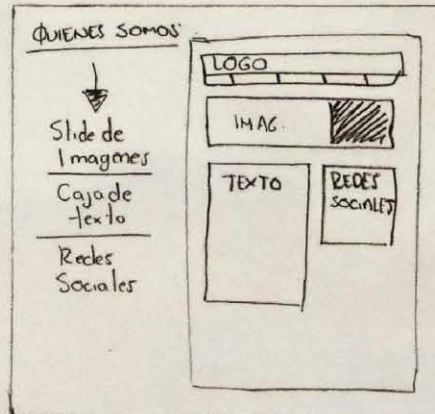 QUIENES SOMOS
Slide de
Imagenes
Caja de
texto
Redes
Sociales
LOGO
IMAG.
TEXTO
REDES
SOCIALES